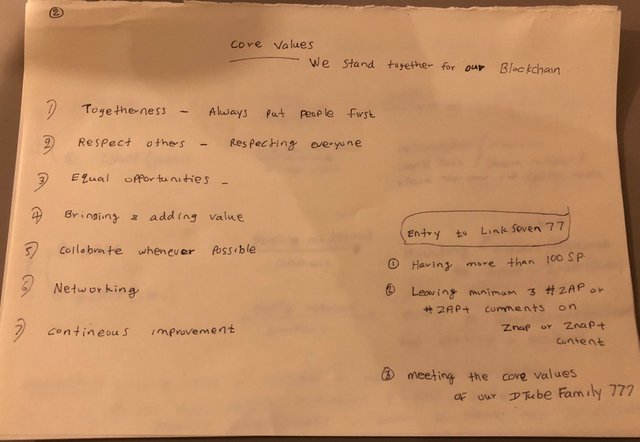 2
Core Values
We Stand together for our Blockchain
1) Togetherness - Always Put People First
2) Respect others - Respecting everyone
3) Equal opportunities -
4) Bringing & adding value
5) Collobrate whenever Possible
6) Networking
7) Contineous improvement
Entry to Link Seven 77
1 Having more than 100 SP
2 Leaving minimum 3 #ZAP or
#ZAP+ comments on
Znap or Znap+
Content
3 meeting the core values
of our DTube Family 777